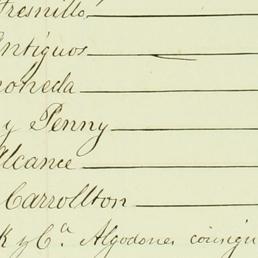 Fresnillo
Antiguos
moneda
y Penny
Alcance
Carrollton
K y Ca. Algodones consign